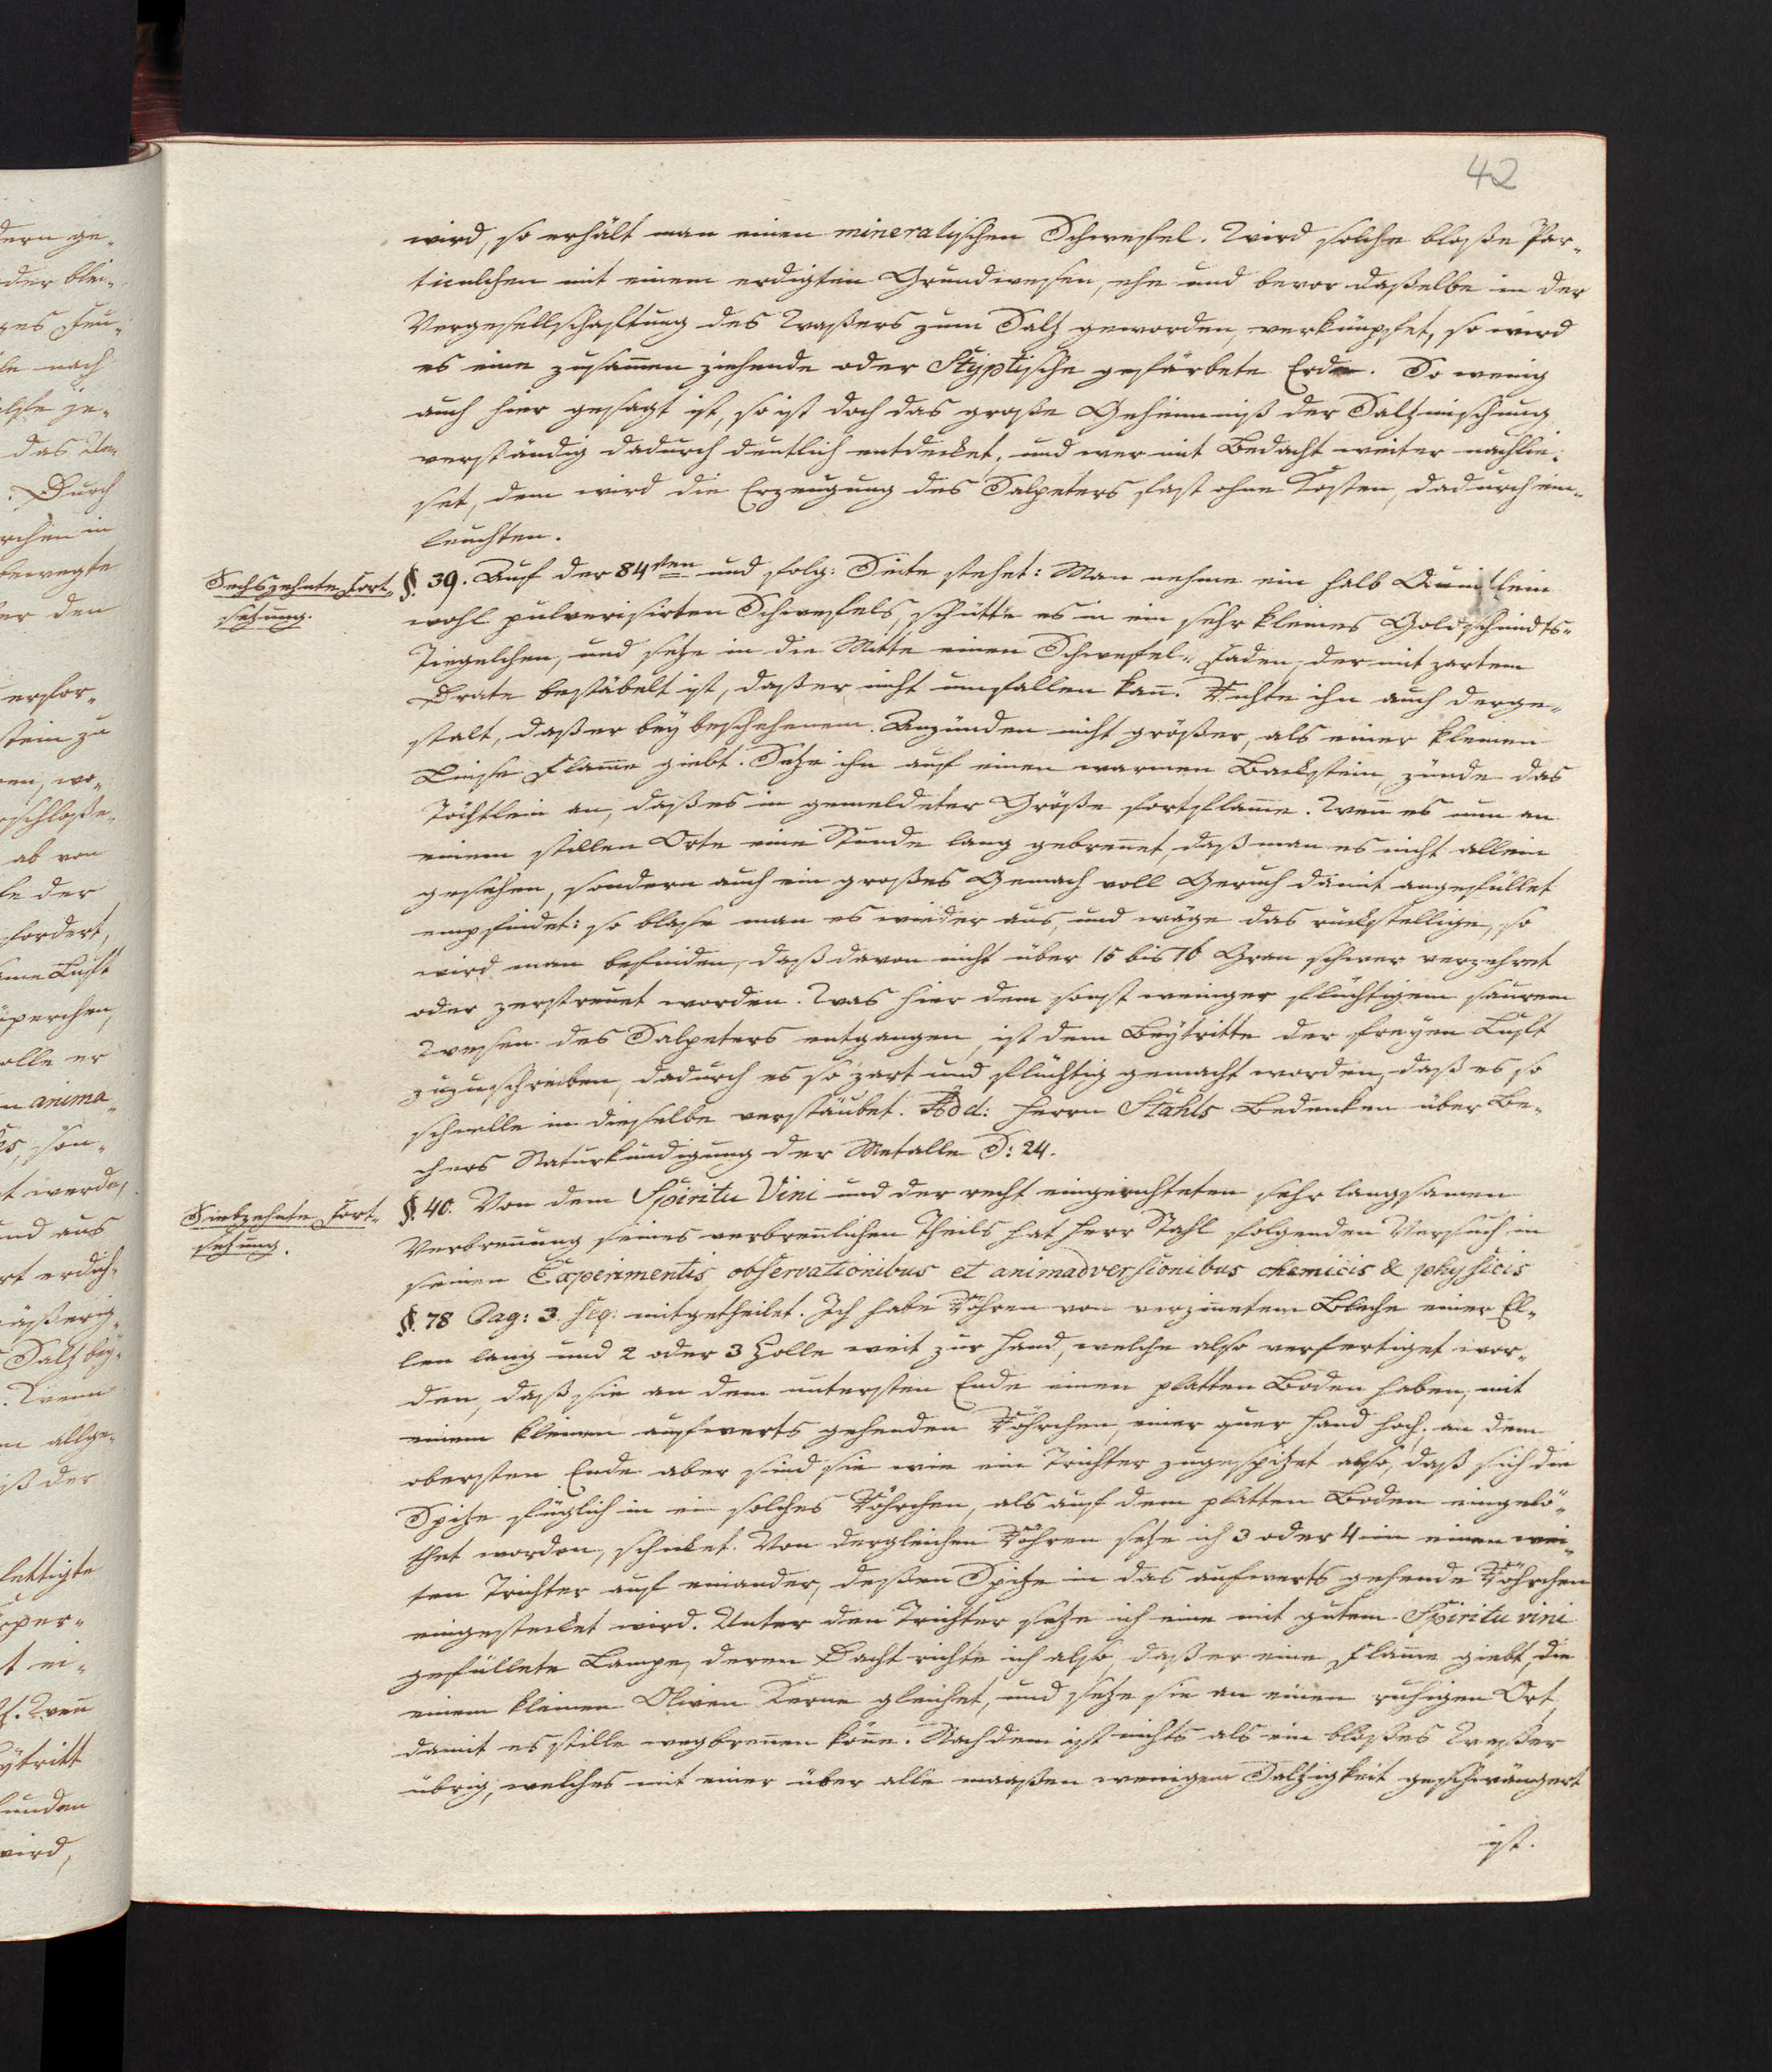 42
wird, so erhält man einen mineralischen Schwefel. Wird solche bloße Par-
ticulchen mit einem erdigten Grundwesen, ehe und bevor daßelbe in der
Vergesellschaftung des Waßers zum Saltz geworden, verknüpfet, so wird
es eine zusam̄en ziehende oder Styptische gefärbete Erde. So wenig
auch hier gesagt ist, so ist doch das große Geheimniß der Saltzmischung
verständig dadurch deutlich entdecket, und wer mit Bedacht weiter nachlie-
set, dem wird die Erzeugung des Salpeters fast ohne Kosten, dadurch ein-
leuchten.
Sechszehnte Fort-
setzung.
§. 39. Auf der 84sten und folg: Seite stehet: Man nehme ein halb Quintlein
wohl pulverisirten Schwefels, schütte es in ein sehr kleines Goldschmidts-
Tiegelchen, und setze in die Mitte einen Schwefel-Faden, der mit zartem
Drate bestäbelt ist, daß er nicht umfallen kan̄. Richte ihn auch derge-
stalt, daß er bey beschehenem Anzünden nicht größer, als einer kleinen
Linse Flam̄e giebt. Setze ihn auf einen warmen Backstein, zünde das
Töchtlein an, daß es in gemeldeter Größe fortflam̄e. Wen̄ es nun an
einem stillen Orte eine Stunde lang gebren̄et, daß man es nicht allein
gesehen, sondern auch ein großes Gemach voll Geruch damit angefüllet
empfindet: so blase man es wieder aus, und wäge das rückstellige, so
wird man befinden, daß davon nicht über 15 bis 16 Gran schwer verzehret
oder zerstreuet worden. Was hier dem sonst weniger flüchtigem saurem
Wesen des Salpeters entgangen, ist dem Beytritte der freyen Luft
zuzuschreiben, dadurch es so zart und flüchtig gemacht worden, daß es so
schnelle in dieselbe verstäubet. Add: Herrn Stahls Bedenken über Be-
chers Naturkündigung der Metalle S: 24.
Siebzehnte Fort-
setzung.
§. 40. Von dem Spiritu Vini und der recht eingerichteten sehr langsamen
Verbren̄ung seines verbren̄lichen Theils hat Herr Stahl folgenden Versuch in
seinen Experimentis, observationibus et animadversionibus chemicis & physicis
§. 78 Pag: 3. seq: mitgetheilet. Ich habe Röhren von verzin̄etem Bleche einer El-
len lang und 2 oder 3 Zolle weit zur Hand, welche also verfertiget wor-
den, daß sie an dem untersten Ende einen platten Boden haben, mit
einem kleinen aufwerts gehenden Röhrchen, einer quer Hand hoch, an dem
obersten Ende aber sind sie wie ein Trichter zugespitzet also, daß sich die
Spitze füglich in ein solches Röhrchen, als auf dem platten Boden eingelö-
thet worden, schicket. Von dergleichen Röhren setze ich 3 oder 4 in einen wei-
ten Trichter auf einander, deßen Spitze in das aufwerts gehende Röhrchen
eingestecket wird. Unter den Trichter setze ich eine mit gutem Spiritu vini
gefüllete Lampe, deren Dacht richte ich also, daß er eine Flam̄e giebt, die
einem kleinen Oliven Kerne gleichet, und setze sie an einen ruhigen Ort,
damit es stille wegbren̄en kön̄e. Nachdem ist nichts als ein bloßes Waßer
übrig, welches mit einer über alle maaßen wenigen Saltzigkeit geschwängert
ist.